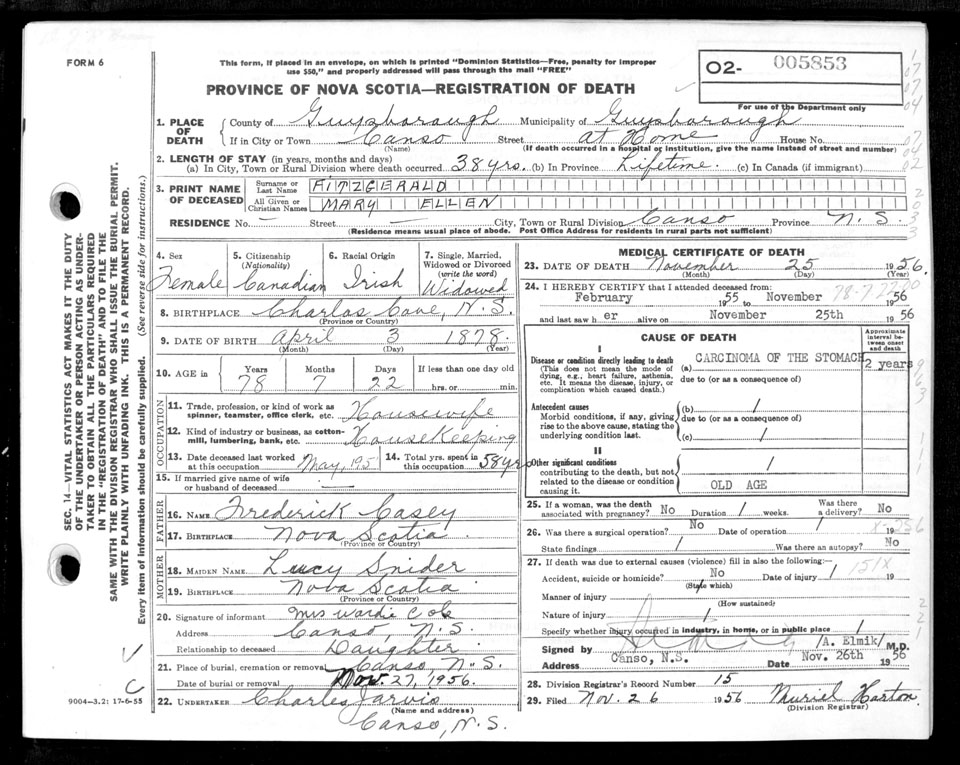 FORM 6
This form, if placed in an envelope, on which is printed "Dominion Statistics—Free, penalty for improper
use $50," and properly addressed will pass through the mail "FREE"
O2- 005853
For use of the Department only
PROVINCE OF NOVA SCOTIA—REGISTRATION OF DEATH
SEC. 14—VITAL STATISTICS ACT MAKES IT THE DUTY
OF THE UNDERTAKER OR PERSON ACTING AS UNDER-
TAKER TO OBTAIN ALL THE PARTICULARS REQUIRED
IN THE "REGISTRATION OF DEATH" AND TO FILE THE
SAME WITH THE DIVISION REGISTRAR WHO SHALL ISSUE THE BURIAL PERMIT.
WRITE PLAINLY WITH UNFADING INK. THIS IS A PERMANENT RECORD.
Every item of information should be carefully supplied. (See reverse side for instructions.)
1. PLACE OF DEATH
County of Guysborough Municipality of Guysborough
If in City or Town Canso Street at Home House No.
(Name) (If death occurred in a hospital or institution, give the name instead of street and number)
2. LENGTH OF STAY (in years, months and days)
(a) In City, Town or Rural Division where death occurred 38 yrs. (b) In Province Lifetime. (c) In Canada (if immigrant)
3. PRINT NAME OF DECEASED
Surname or Last Name FITZGERALD
All Given or Christian Names MARY ELLEN
RESIDENCE No. — Street — City, Town or Rural Division Canso Province N.S.
(Residence means usual place of abode. Post Office Address for residents in rural parts not sufficient)
4. Sex Female
5. Citizenship (Nationality) Canadian
6. Racial Origin Irish
7. Single, Married, Widowed or Divorced (write the word) Widowed
8. BIRTHPLACE Charlos Cove, N.S.
(Province or Country)
9. DATE OF BIRTH April 3 1878
(Month) (Day) (Year)
10. AGE in Years 78 Months 7 Days 22 If less than one day old hrs. or min.
OCCUPATION
11. Trade, profession, or kind of work as spinner, teamster, office clerk, etc. Housewife
12. Kind of industry or business, as cotton-mill, lumbering, bank, etc. Housekeeping
13. Date deceased last worked at this occupation May, 195
14. Total yrs. spent in this occupation 58 yrs
15. If married give name of wife or husband of deceased —
FATHER
16. NAME Frederick Casey
17. BIRTHPLACE Nova Scotia
(Province or Country)
MOTHER
18. MAIDEN NAME Lucy Snider
19. BIRTHPLACE Nova Scotia
(Province or Country)
20. Signature of informant Mrs Wardie
Address Canso, N.S.
Relationship to deceased Daughter
21. Place of burial, cremation or removal Canso, N.S.
Date of burial or removal Nov. 27, 1956.
22. UNDERTAKER Charles Jarvis
(Name and address)
Canso, N.S.
9004—3.2: 17-6-55
MEDICAL CERTIFICATE OF DEATH
23. DATE OF DEATH November 25 1956.
(Month) (Day) (Year)
24. I HEREBY CERTIFY that I attended deceased from:
February 1955 to November 1956
and last saw h er alive on November 25th 1956
CAUSE OF DEATH
Approximate interval between onset and death
I
Disease or condition directly leading to death
(This does not mean the mode of dying, e.g., heart failure, asthenia, etc. It means the disease, injury, or complication which caused death.)
(a) CARCINOMA OF THE STOMACH 2 years
due to (or as a consequence of)
Antecedent causes
Morbid conditions, if any, giving rise to the above cause, stating the underlying condition last.
(b) /
due to (or as a consequence of)
(c) /
II
Other significant conditions
contributing to the death, but not related to the disease or condition causing it.
/
OLD AGE
25. If a woman, was the death associated with pregnancy? No Duration / weeks. Was there a delivery? No
26. Was there a surgical operation? No Date of operation / 19
State findings / Was there an autopsy? No
27. If death was due to external causes (violence) fill in also the following:—
Accident, suicide or homicide? No Date of injury / 19
(State which)
151X
Manner of injury
(How sustained)
Nature of injury /
Specify whether injury occurred in industry, in home, or in public place /
Signed by /A. Elmik/ M.D.
Address Canso, N.S. Date Nov. 26th 1956
28. Division Registrar's Record Number 15
29. Filed Nov. 26 1956 Muriel Horton
(Division Registrar)